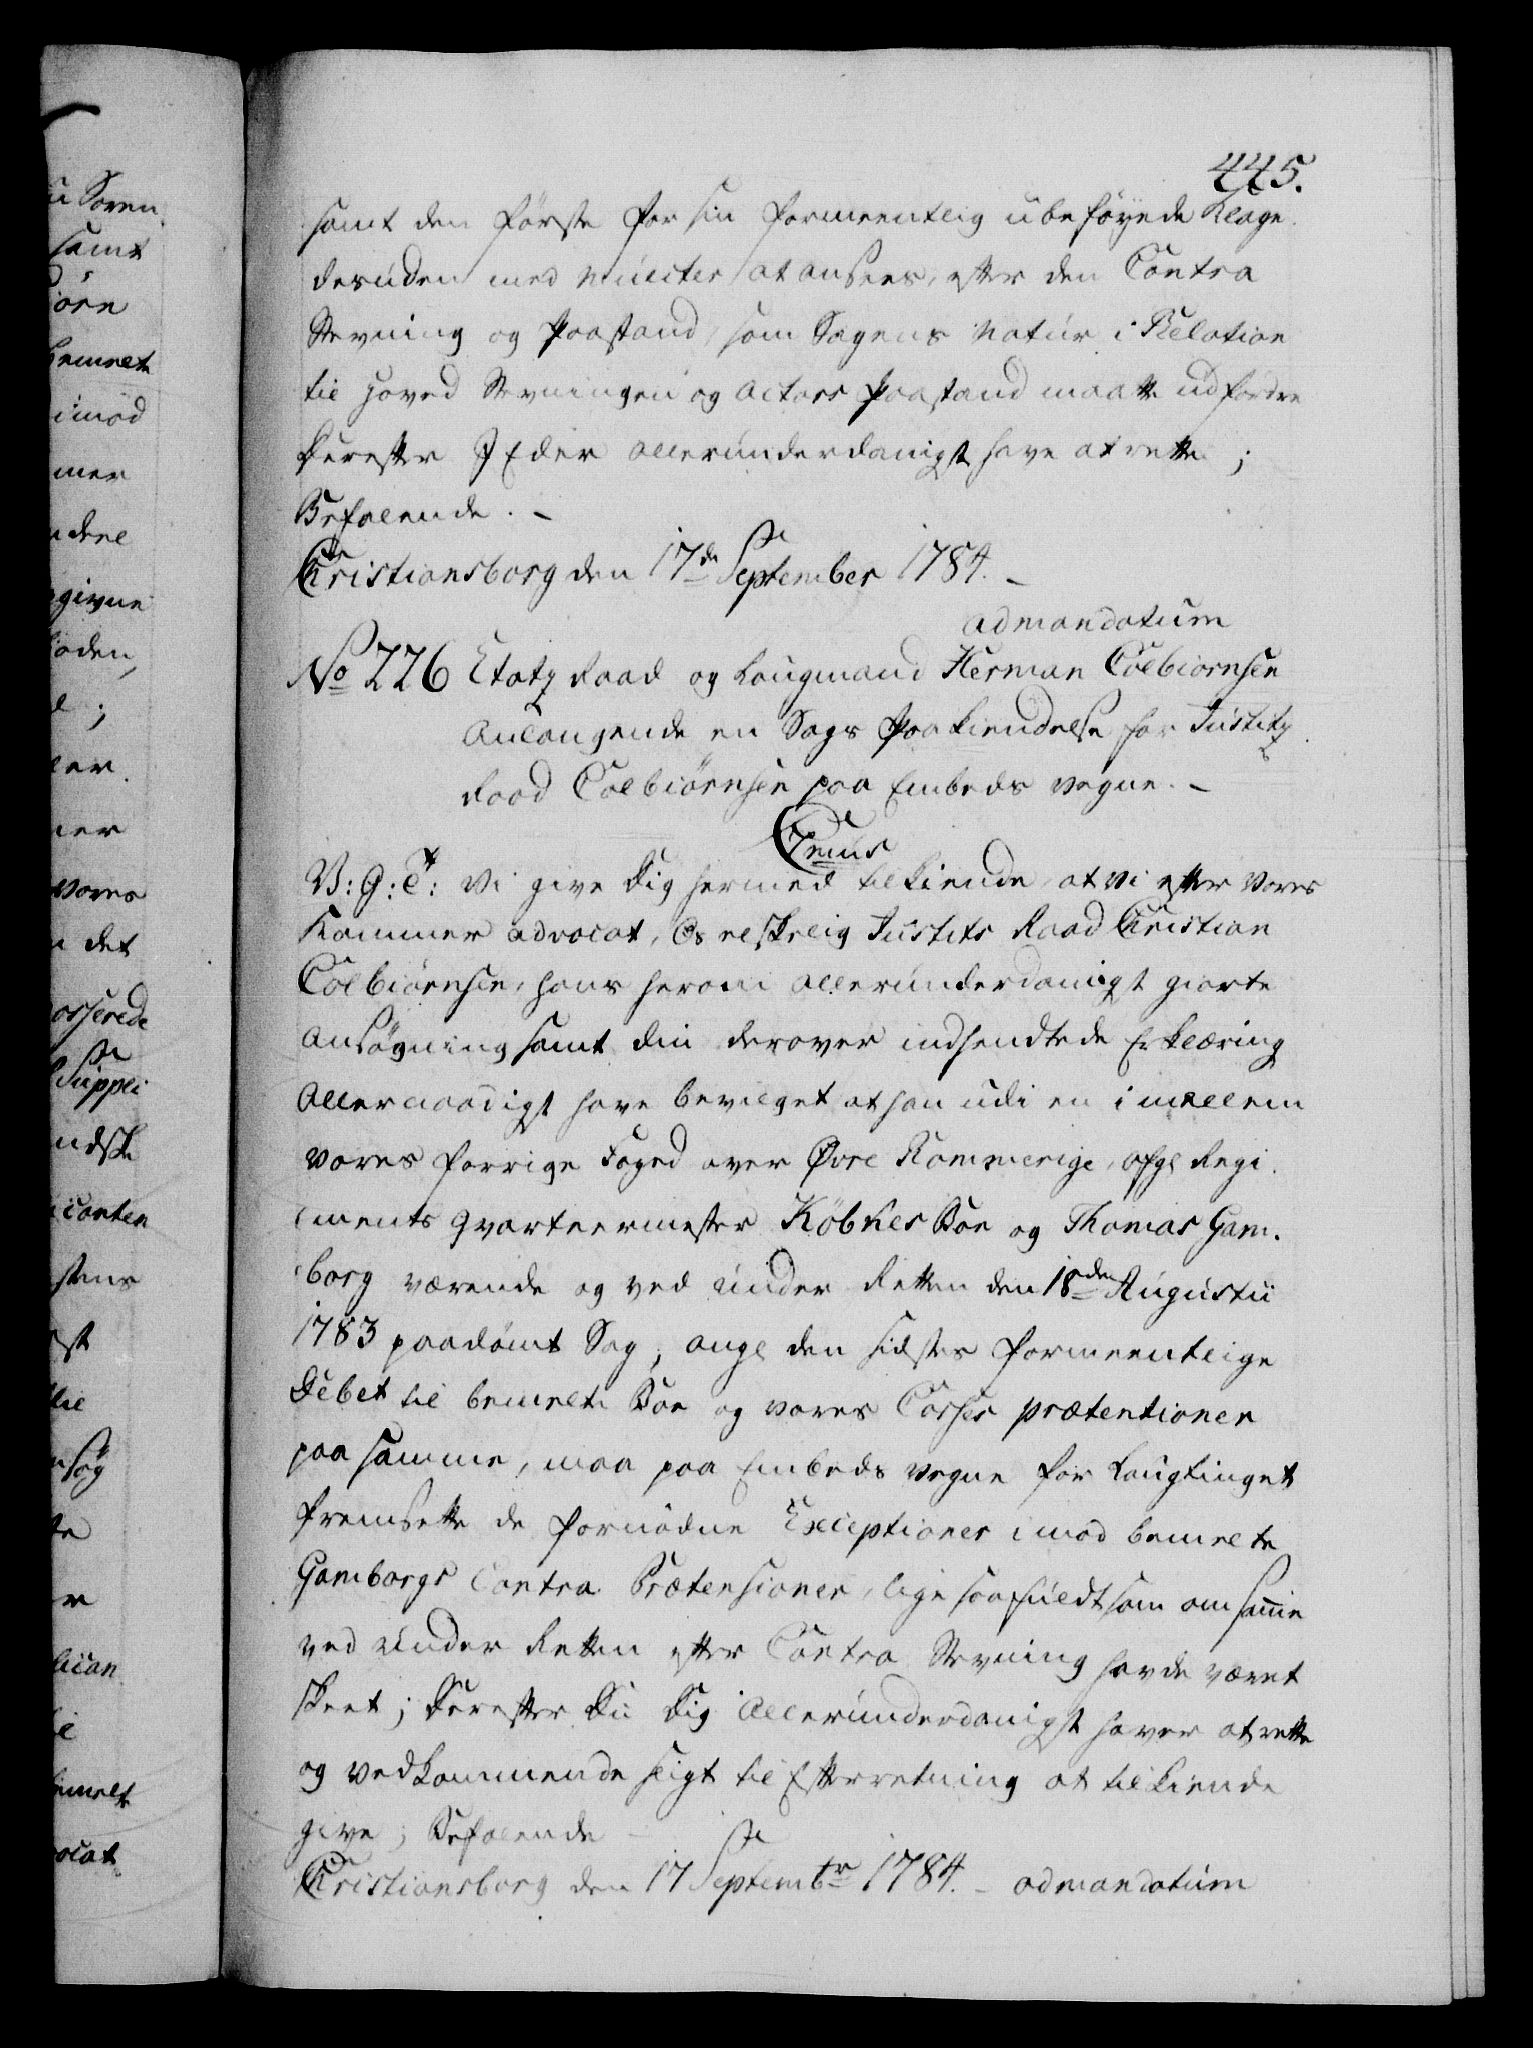 445.
samt den første for sin formeentlig ubeføyede Klage
desuden med mulcter at ansees, efter den Contra
Stevning og Paastand, som Sagens Natur i Relation
til Hoved Stevningen og Actors Paastand maatte udfordre
Derefter I Eder allerunderdanigst have at rette;
Befalende. –
Christiansborg den 17de September 1784. –
ad mandatum
No 226 Etatz Raad og Laugmand Herman Colbiørnsen
Anlangende en Sags Paakiendelse for Justitz
Raad Colbiørnsen paa Embeds vegne. –
C 7mus
V: G: T: Vi give Dig hermed tilkiende, at vi efter Vores
Kammer advocat, Os elskelig Justits Raad Christian
Colbiørnsen, hans herom allerunderdanigst giorte
Ansøgning samt din derover indsendte Erklæring
Allernaadigst have bevilget at han udi en imellem
vores forrige Foged over Øvre Rommerige, afgl Regi
ments Qvarteermester Købkes Boe og Thomas Gam-
borg værende og ved under Retten den 18de Augustii
1783 paadømt Sag, angl den sidstes formeentlige
Debet til bemelte Boe og vores Casses prætentioner
paa samme, maa paa Embeds vegne for Laugtinget
fremsette de fornødne Exceptioner imod bemelte
Gamborgs Contra Prætensioner, lige saafuldt som om samme
ved under Retten efter Contra Stevning havde været
skeet; Derefter Du Dig allerunderdanigst haver at rette
og vedkommende sligt til Efterretning at tilkiende
give; Befalende –
Christiansborg den 17 Septembr 1784. – ad mandatum